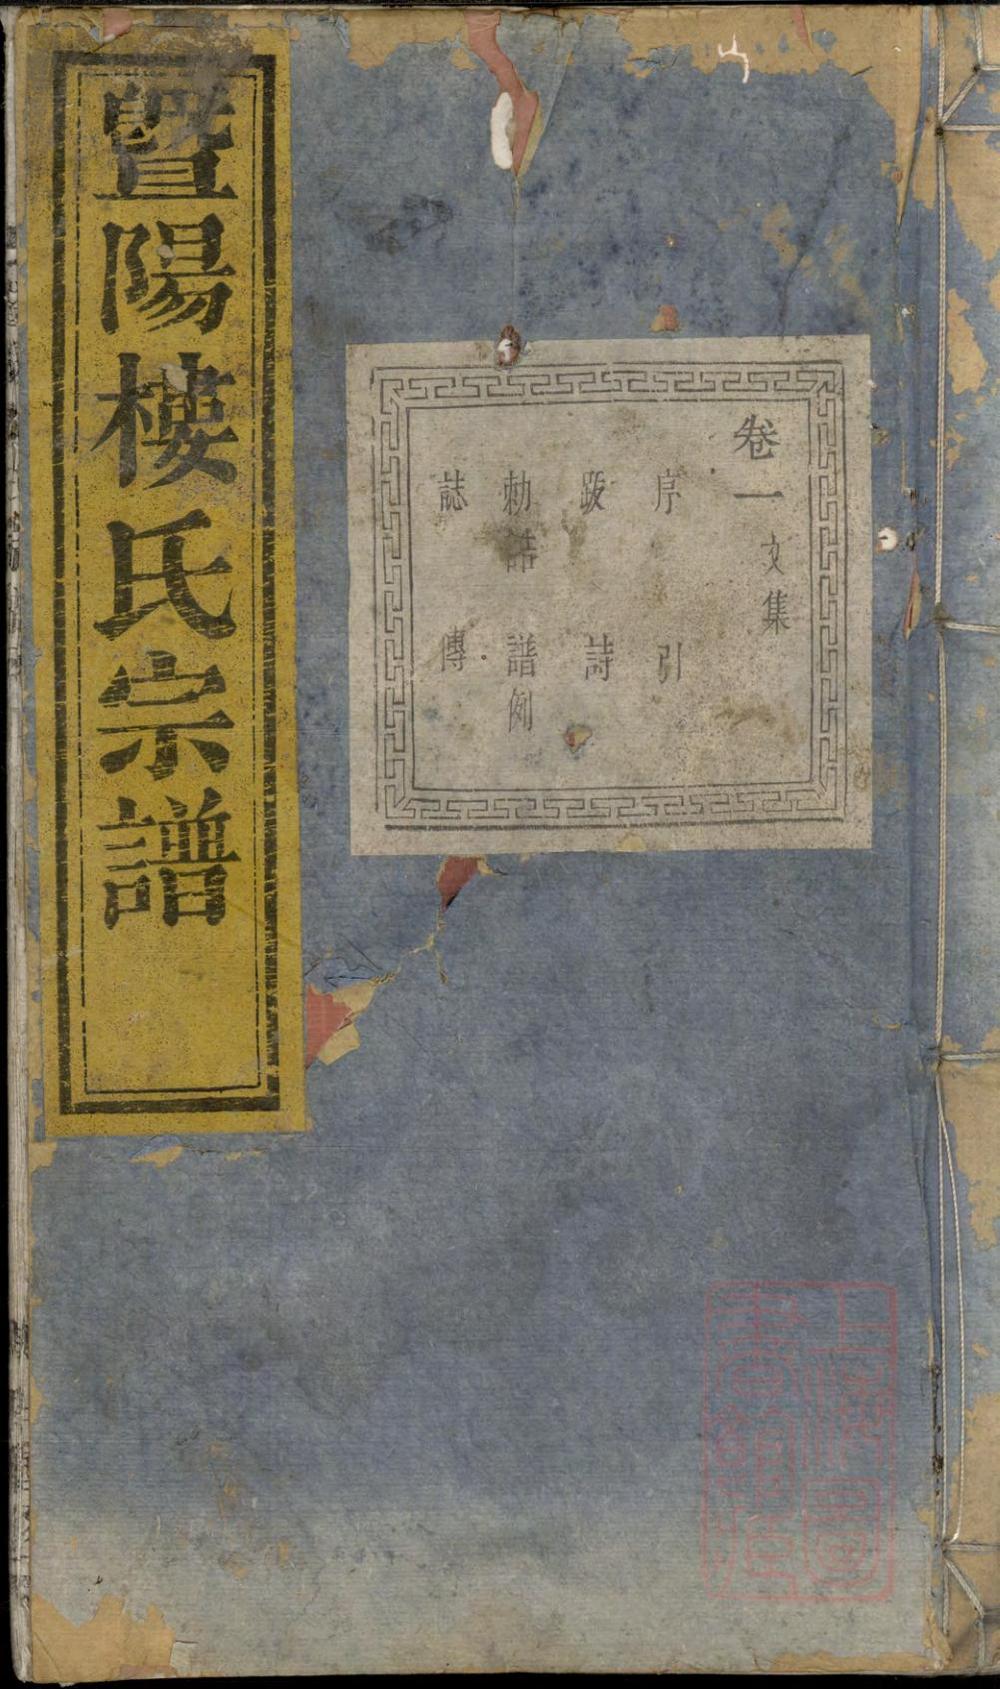 暨陽樓氏宗譜
卷一 文集
序 引
跋 詩
勅誥 譜例
誌 傳
上海圖
書館藏